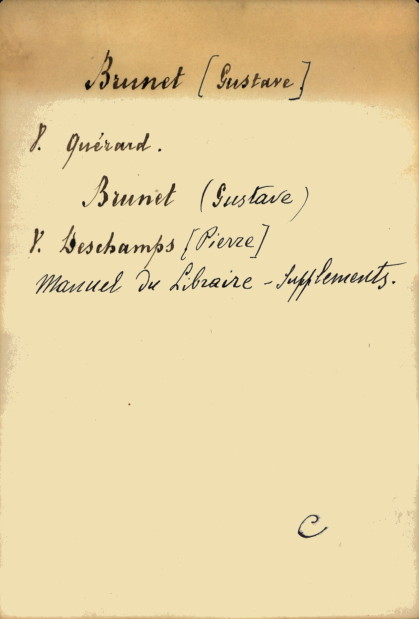 Brunet [Gustave]
V. Quérard.
Brunet (Gustave)
V. Deschamps [Pierre]
Manuel du Libraire - Supplements.
C